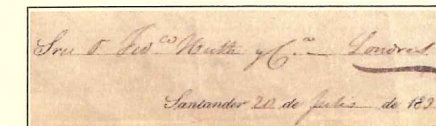 Sres Dn Fedco Huth y Ca Londres.
Santander 20 de Julio de 183